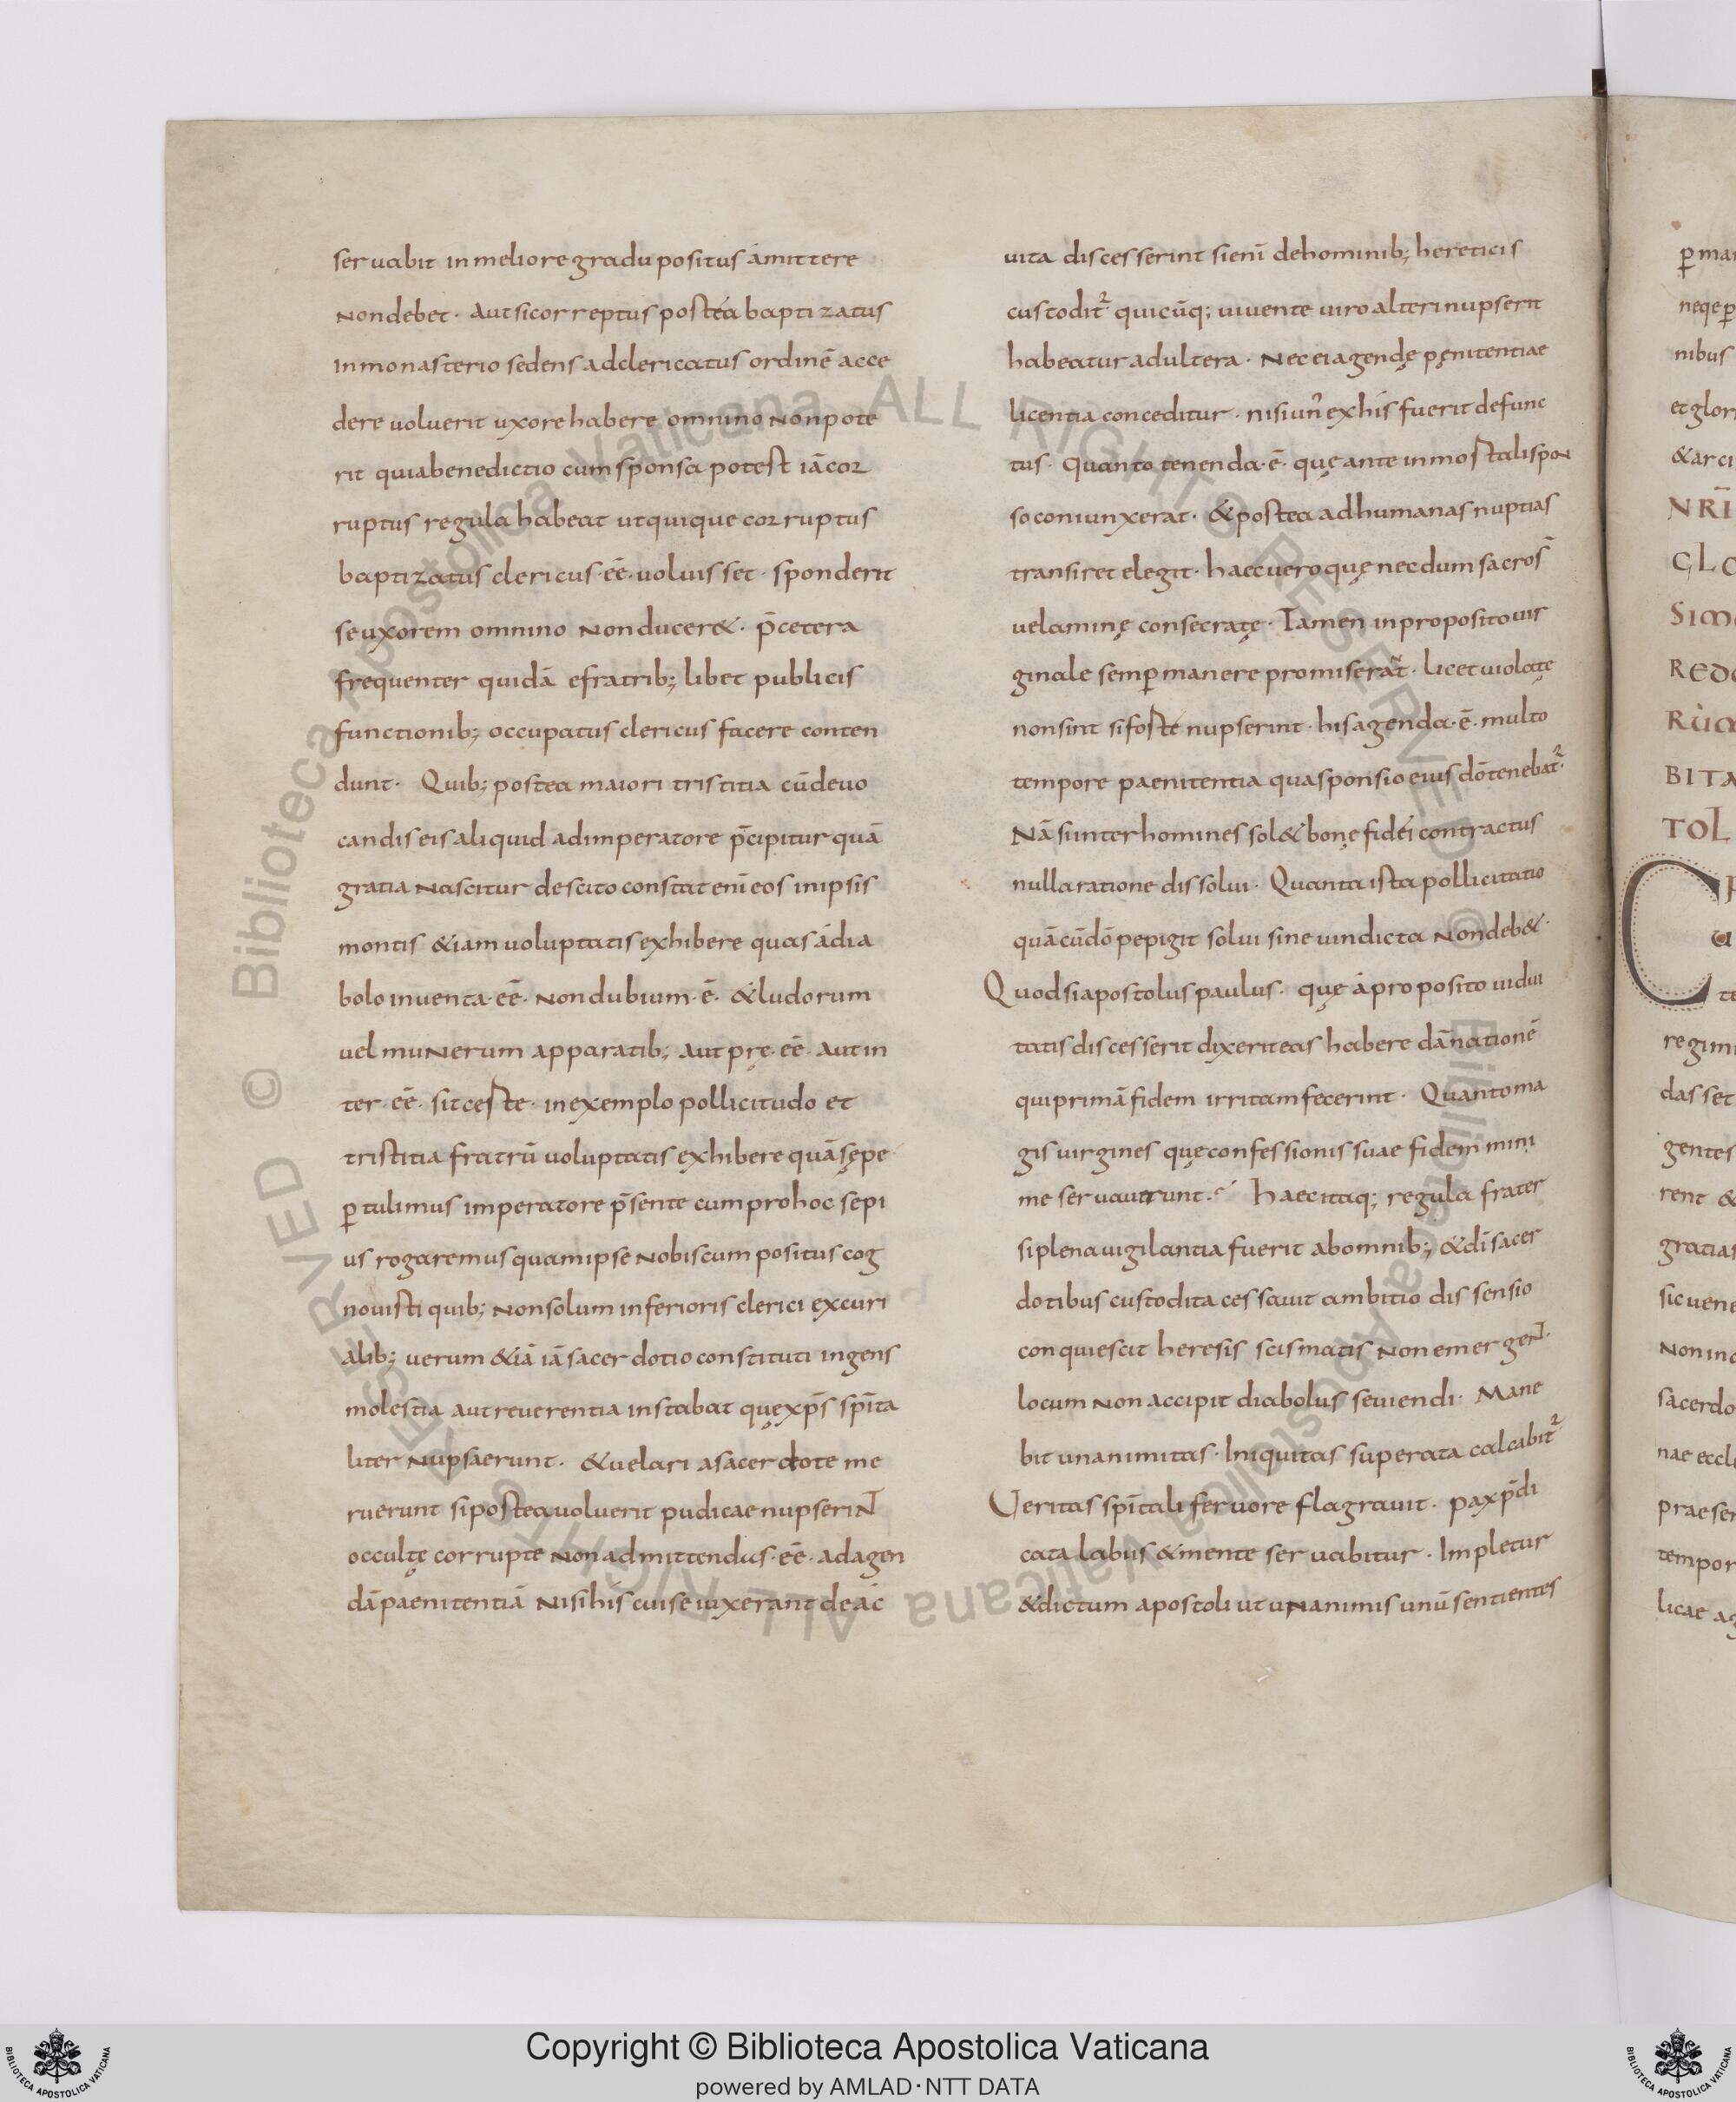 seruabit in meliore gradu positus ámittere
Non debet · Aut si correptus postéa baptizatus
In monasterio sedens ad clericatus ordinē acce
dere uoluerit uxore habere omnino Non pote
rit quia benedictio cum sponsa potest iā cor
ruptus regula habeat ut quique corruptus
baptizatus clericus · eē · uoluisset · sponderit
se uxorem omnino Non ducer& · p̄cetera
frequenter quidā e fratrib; libet publicis
functionib; occupatus clericus facere conten
dunt · Quib; postea maiori tristitia cū de uo
candis eis aliquid ad imperatore p̄cipitur quā
gratia Nascitur de scito constat enī eos in ipsis
montis &iam uoluptatis exhibere quas á dia
bolo inuenta · eē · Non dubium · ē · & ludorum
uel muNerum apparatib; aut pręeē · aut in
ter · eē · sit ceste · in exemplo pollicitudo et
tristitia fratrū uoluptatis exhibere quā sępe
ꝑtulimus imperatore p̄sente cum pro hoc sepi
us rogaremus quam ipse Nobiscum positus cog
nouisti quib; Non solum inferioris clerici ex curi
alib; uerum &iā iā sacerdotio constituti ingens
molestia aut reuerentia instabat quę xp̄s sp̄ita
liter Nupsaerunt · & uelari a sacerdote me
ruerunt si postea uoluerit pudicae nupseriNT
occultę corrupte Non admittendus · eē · ad agen
dā paenitentiā Nisi hís cui se iuxerant de ác
uita discesserint si enī de hominib; hereticis
custoditr̄ quicūq; uiuente uiro alteri nupserit
habeatur adultera · Nec ei agendę pęnitentiae
licentia conceditur · nisi un̄ ex hís fuerit defunc
tus · Quanto tenenda · ē · quę ante inmostali spoN
so coniunxerat · & postea ad humanas nuptias
transiret elegit · haec uero quę necdum sacros̄
uelaminę consecratę · Tamen in proposito uir
ginale semꝑ manere promiserāt · licet uiolatę
non sint si foste nupserint · his agenda · ē · multo
tempore paenitentia qua sponsio eius dō tenebatr̄ ·
Nā si inter homines sol& bonę fidéi contractus
nulla ratione dissolui · Quanta ista pollicitatio
quā cū dō pepigit solui sine uindicta Non deb& ·
Quod si apostolus paulus · quę á proposito uidui
tatis discesserit dixerit eas habere dānationē
qui primā fidem irritam fecerint · Quanto ma
gis uirgines quę confessionis suae fidem mini
me seruauerunt · Haec itaq; regula frater
si plena uigilantia fuerit ab omnib; & dī sacer
dotibus custodita cessauit ambitio dissensio
conquiescit heresis scismatis Non emergeNT ·
locum Non accipit diabolus seuiendi · Mane
bit unanimitas · Iniquitas superata calcabitr̄
Ueritas sp̄itali feruore flagrauit · pax p̄di
cata labus & mente seruabitur · Impletur
& dictum apostoli ut uNanimis unū sentientes
ꝑ ma
neqe ꝑ
nibus
et glor
& arci
NR̄I
GLO
SIM
RED
RU
BITA
TOL
regim
das set
gentes
rent &
gratias
sic uene
Non in
sacerdo
nae eccl
praeser
tempor
licae ag
© Biblioteca Apostolica Vaticana ALL RIGHTS RESERVED © Biblioteca Apostolica Vaticana ALL RIGHTS RESERVED
Copyright © Biblioteca Apostolica Vaticana
powered by AMLAD · NTT DATA
BIBLIOTECA APOSTOLICA VATICANA
BIBLIOTECA APOSTOLICA VATICANA